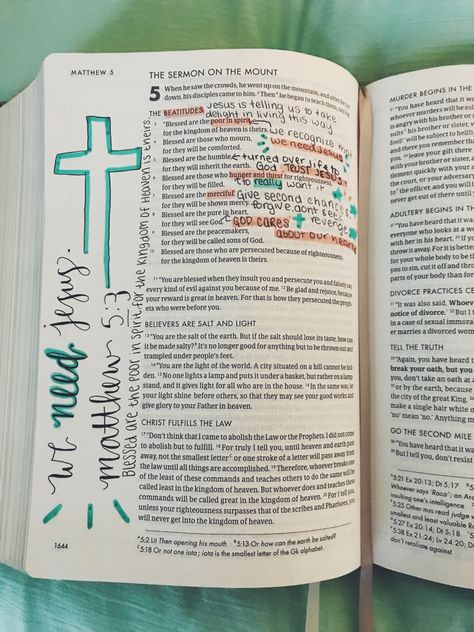 MATTHEW 5
THE SERMON ON THE MOUNT
5 When he saw the crowds, he went up on the mountain, and after he sat
down, his disciples came to him. 2 Then he began to teach them, saying
THE BEATITUDES
Jesus is telling us to take
delight in living this way
3 "Blessed are the poor in spirit,
for the kingdom of heaven is theirs.
we recognize that
we need Jesus
4 Blessed are those who mourn,
for they will be comforted.
5 Blessed are the humble,
for they will inherit the earth.
turned over life to
God. TRUST JESUS
6 Blessed are those who hunger and thirst for righteousness,
for they will be filled.
to really want it
7 Blessed are the merciful,
for they will be shown mercy.
Give second chances
forgive, don't seek
revenge
8 Blessed are the pure in heart,
for they will see God.
GOD CARES
about our hearts
9 Blessed are the peacemakers,
for they will be called sons of God.
10 Blessed are those who are persecuted because of righteousness,
for the kingdom of heaven is theirs.
11 "You are blessed when they insult you and persecute you and falsely say
every kind of evil against you because of me. 12 Be glad and rejoice, because
your reward is great in heaven. For that is how they persecuted the proph-
ets who were before you.
BELIEVERS ARE SALT AND LIGHT
13 "You are the salt of the earth. But if the salt should lose its taste, how can
it be made salty? It's no longer good for anything but to be thrown out and
trampled under people's feet.
14 "You are the light of the world. A city situated on a hill cannot be hid-
den. 15 No one lights a lamp and puts it under a basket, but rather on a lamp-
stand, and it gives light for all who are in the house. 16 In the same way, let
your light shine before others, so that they may see your good works and
give glory to your Father in heaven.
CHRIST FULFILLS THE LAW
17 "Don't think that I came to abolish the Law or the Prophets. I did not come
to abolish but to fulfill. 18 For truly I tell you, until heaven and earth pass
away, not the smallest letter or one stroke of a letter will pass away from
the law until all things are accomplished. 19 Therefore, whoever breaks one
of the least of these commands and teaches others to do the same will be
called least in the kingdom of heaven. But whoever does and teaches these
commands will be called great in the kingdom of heaven. 20 For I tell you,
unless your righteousness surpasses that of the scribes and Pharisees, you
will never get into the kingdom of heaven.
5:2 Lit Then opening his mouth 5:13 Or how can the earth be salted?
5:18 Or not one iota; iota is the smallest letter of the Gk alphabet.
1644
we need Jesus.
Matthew 5:3
Blessed are the poor in Spirit, for the kingdom of Heaven is theirs
MURDER BEGINS IN THE
21 "You have heard that it
whoever murders will be
is angry with his brother or
sults his brother or sister,
fool!' will be subject to hellfi
and there you remember that
you, 24 leave your gift there
with your brother or sister,
quickly with your a
the court, or your adversary
to the officer, and you will
never get out of there until
ADULTERY BEGINS IN TH
27 "You have heard that it wa
everyone who looks at a wo
with her in his heart. 29 If
away. For it is better th
for your whole body to be th
you to sin, cut it off and thr
parts of your body than for
DIVORCE PRACTICES CE
31 "It was also said, Whoev
notice of divorce. 32 But I t
in a case of sexual immora
er marries a divorced wom
TELL THE TRUTH
33 "Again, you have heard
break your oath, but you
you, don't take an oath at a
35 or by the earth, because
the city of the great King.
make a single hair white
or 'no' mean 'no.' Anything m
GO THE SECOND MILE
38 "You have heard that it w
5:21 Ex 20:13; Dt 5:17
Whoever says 'Raca'; an Ara
resulting one's intelligence
5:25 Other mss read judge w
smallest and least valuable Ro
5:27 Ex 20:14; Dt 5:18
5:38 Ex 21:24; Lv 24:20; D
don't retaliate against